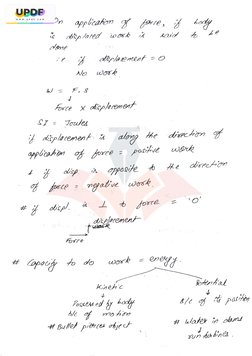 UPDF
WWW.UPDF.COM
On application of force, if body
is displaced work is said to be
done
∴ if displacement = 0
No work
W = F.S
↓
Force x displacement
SI = Joules
if displacement is along the direction of
application of force = positive work
& if disp. is opposite to the direction
of force = negative work
# if displ. is ⊥ to force = '0'
displacement
work
Force
# Capacity to do work = energy
Kinetic
Potential
Possessed by body
b/c of its position
b/c of motion
# Water in dams
# Bullet pierces object
run turbines.